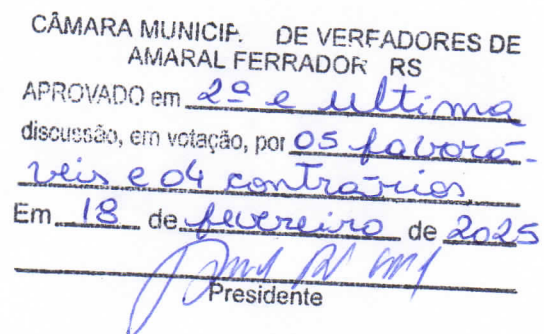 CÂMARA MUNICIP. DE VEREADORES DE
AMARAL FERRADOR RS
APROVADO em 2ª e ultima
discussão, em votação, por 05 favorá-
veis e 04 contrários
Em 18 de fevereiro de 2025
Presidente